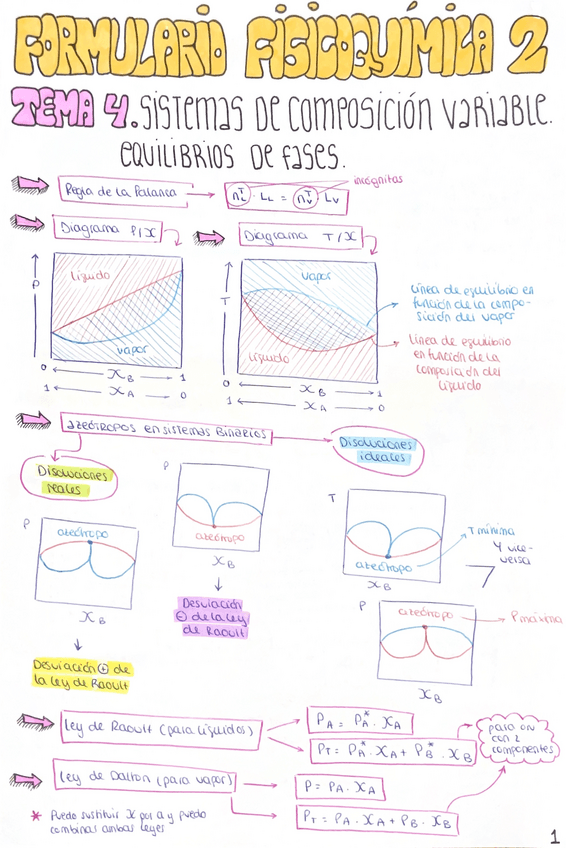 FORMULARIO FISICOQUÍMICA 2
TEMA 4. SISTEMAS DE COMPOSICIÓN VARIABLE.
EQUILIBRIOS DE FASES.
Regla de la Palanca
n_L^T · L_L = n_V^T · L_V
incógnitas
Diagrama P/X
Diagrama T/X
P
líquido
vapor
0 X_B 1
1 X_A 0
T
vapor
líquido
0 X_B 1
1 X_A 0
Línea de equilibrio en
función de la compo-
sición del vapor
Línea de equilibrio
en función de la
composición del
líquido
azeótropos en sistemas Binarios
Disoluciones
ideales
Disoluciones
reales
P
azeótropo
X_B
Desviación
⊖ de la ley
de Raoult
P
azeótropo
X_B
Desviación ⊕ de
la ley de Raoult
T
azeótropo
X_B
T mínima
Y vice-
versa
P
azeótropo
X_B
P máxima
Ley de Raoult (para líquidos)
P_A = P_A^* · X_A
P_T = P_A^* · X_A + P_B^* · X_B
para un
con 2
componentes
Ley de Dalton (para vapor)
P = P_A · X_A
P_T = P_A · X_A + P_B · X_B
* Puedo sustituir X por a y puedo
combinar ambas leyes
1